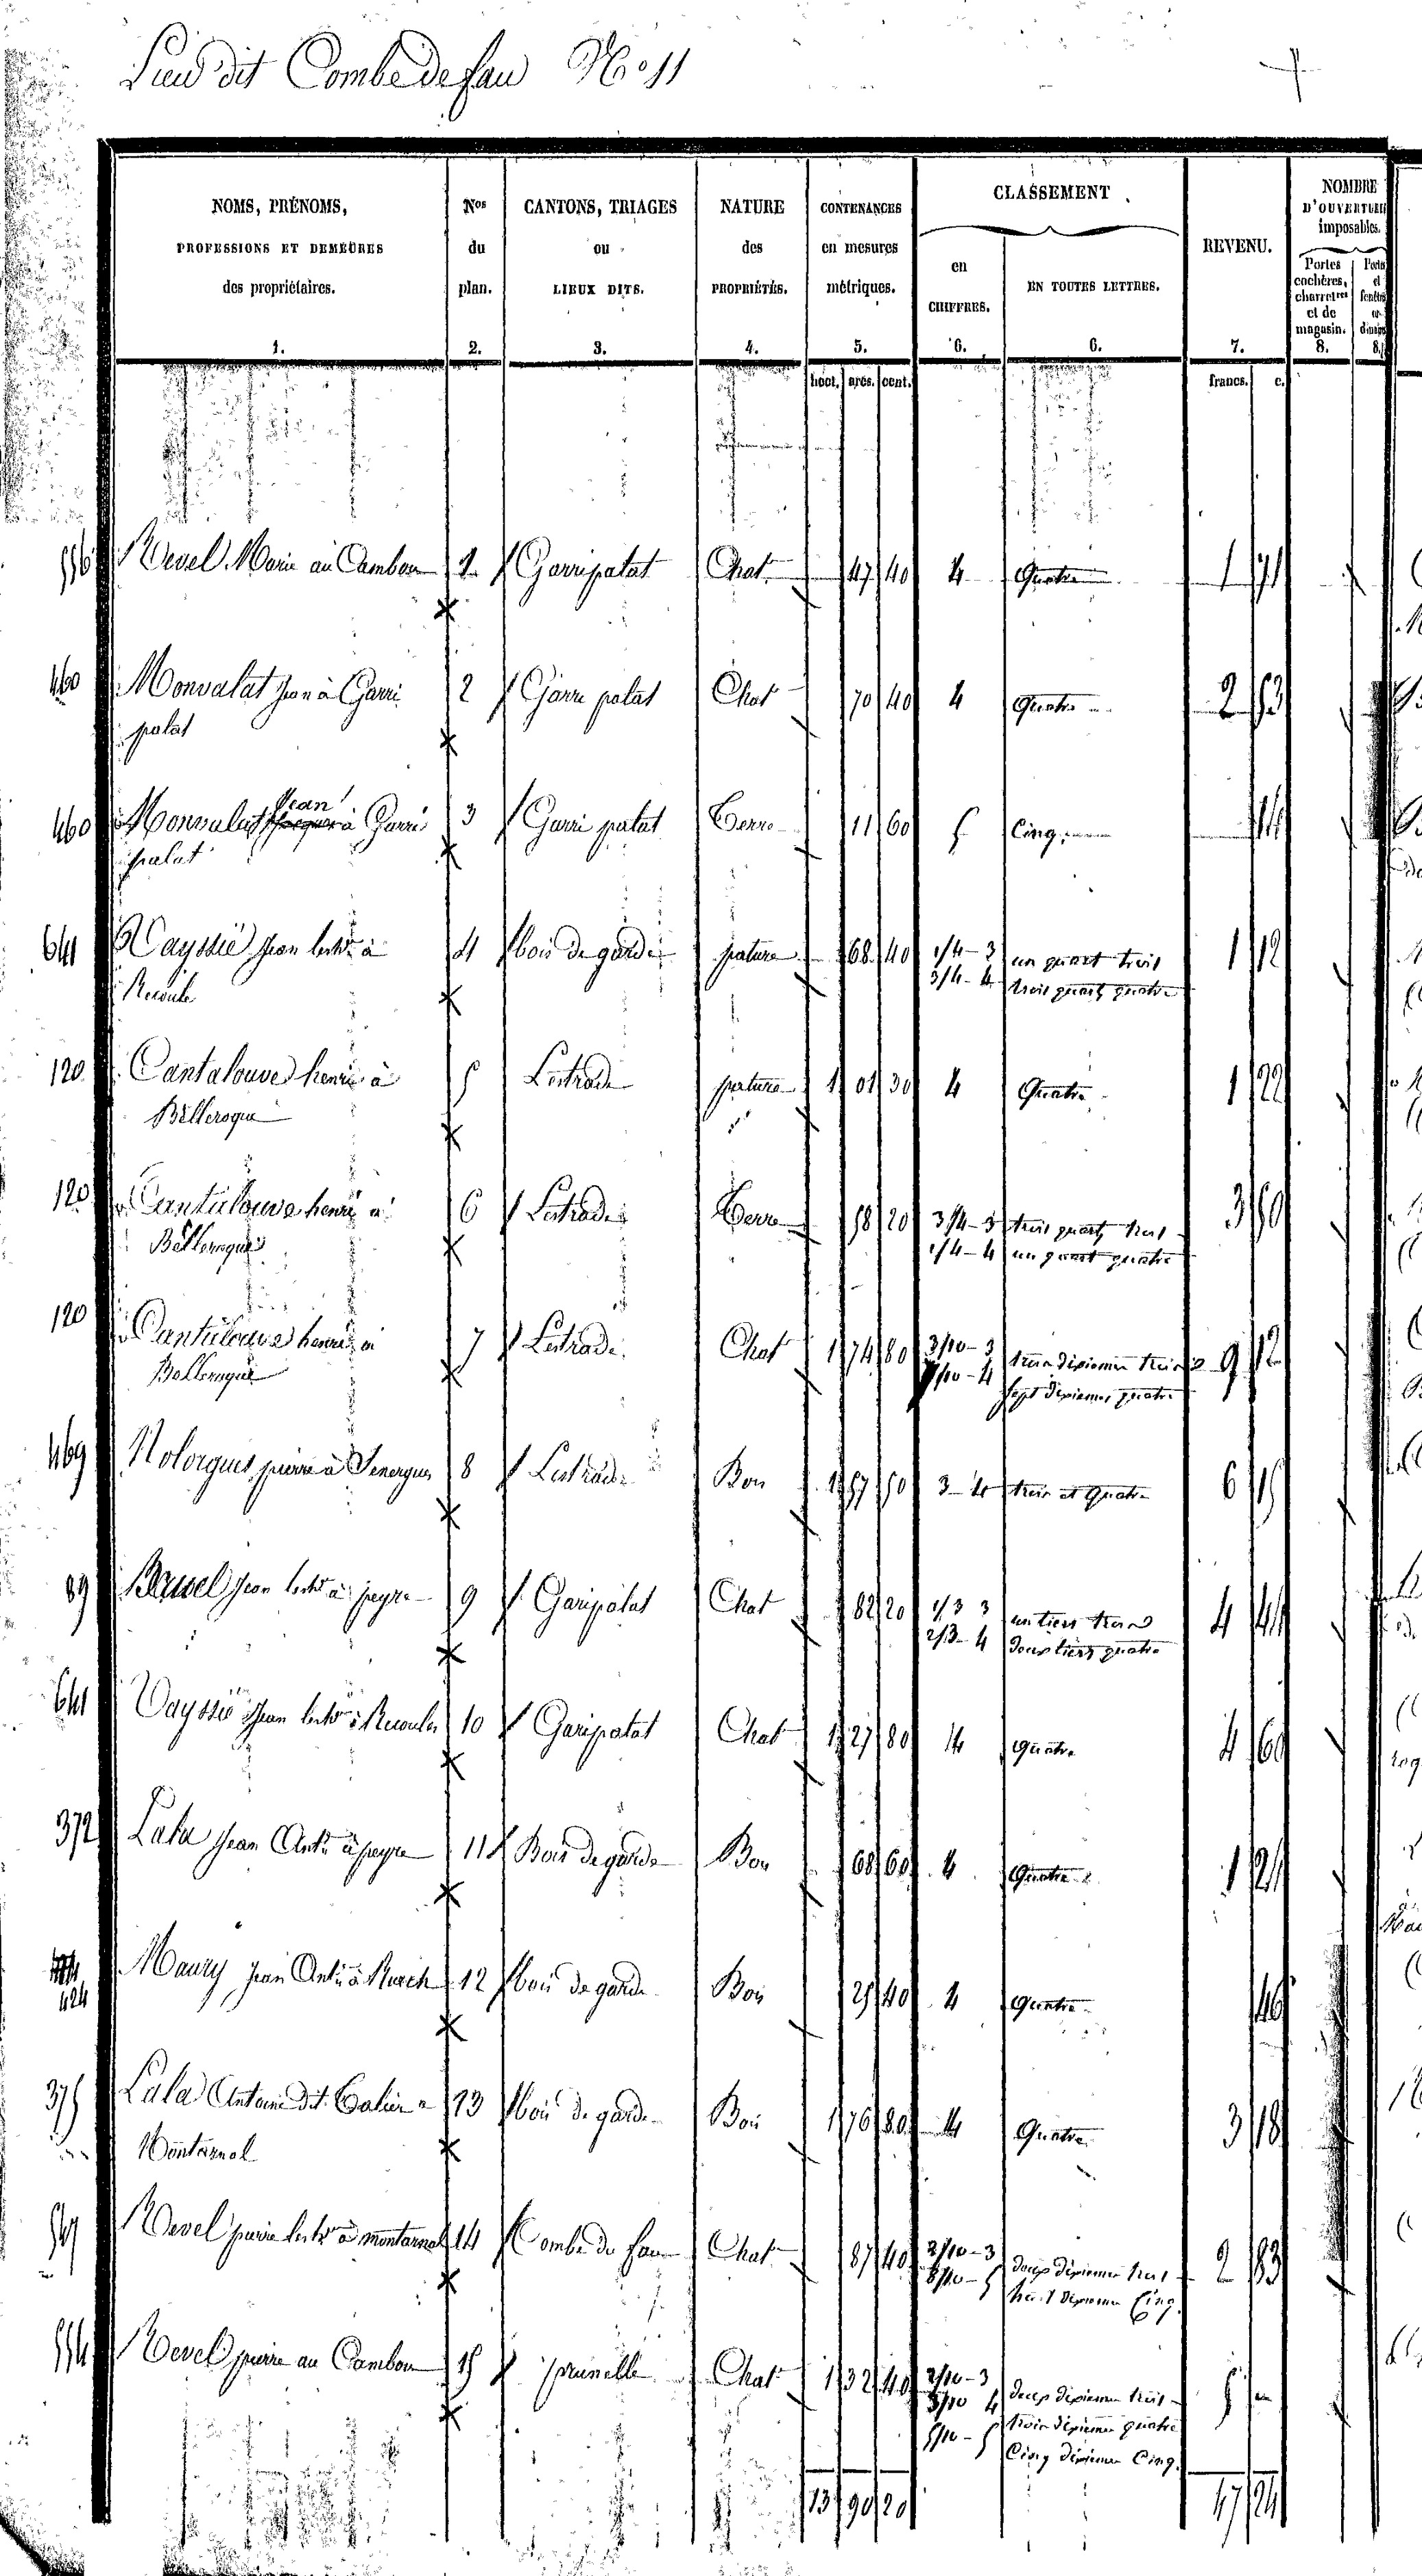 Lieu dit Combe de fau No 11
NOMS, PRÉNOMS,
PROFESSIONS ET DEMEURES
des propriétaires.
1.
Nos
du
plan.
2.
CANTONS, TRIAGES
ou
LIEUX DITS.
3.
NATURE
des
PROPRIÉTÉS.
4.
CONTENANCES
en mesures
métriques.
5.
CLASSEMENT
en
CHIFFRES.
6.
EN TOUTES LETTRES.
6.
REVENU.
7.
NOMBRE
D'OUVERTURES
imposables.
Portes
cochères,
charretres
et de
magasin.
8.
hect. ares. cent.
francs. c.
556 Revel Marie au Cambon 1 Garripatat Chat 47 40 4 Quatre 1 71
460 Monvalat Jean à Garri 2 Garri patat Chat 70 40 4 Quatre 2 53
patat
460 Monvalat Jean à Garri 3 Garri patat Terre 11 60 5 Cinq
patat
641 Vayssié Jean à 4 bois de garde pature 68 40 1/4 - 3 un quart trois 1 12
3/4 - 4 trois quarts quatre
120 Cantalouve henri à 5 Lestrade pature 1 01 30 4 Quatre 1 22
Belleroque
120 Cantalouve henri à 6 Lestrade Terre 58 20 3/4 - 3 trois quarts trois 3 50
Belleroque 1/4 - 4 un quart quatre
120 Cantalouve henri à 7 Lestrade Chat 1 74 80 3/10 - 3 trois dixiemes trois 9 12
Belleroque 7/10 - 4 sept dixiemes quatre
469 pierre à Senergues 8 Lestrade Bon 1 57 50 3 - 4 trois et Quatre 6
89 Jean à peyre 9 Garipatat Chat 82 20 1/3 3 un tiers trois 4 41
2/3 - 4 deux tiers quatre
641 Vayssié Jean à 10 Garipatat Chat 1 27 80 4 Quatre 4 60
372 Lala Jean Ante à peyre 11 Bois de garde Bon 68 60 4 Quatre 1 24
424 Maury Jean Ante à 12 bois de garde Boi 25 40 4 Quatre 46
375 Lala Antoine dit 13 bois de garde Boi 1 76 80 4 Quatre 3 18
Montarnal
Revel pierre à montarnal 14 Combe de fau Chat 87 40 2/10 - 3 deux dixiemes trois 2 83
8/10 - 5 huit dixiemes Cinq
554 Revel pierre au Cambon 15 prunelle Chat 1 32 40 2/10 - 3 deux dixiemes trois 5
3/10 4 trois dixiemes quatre
5/10 - 5 Cinq dixiemes Cinq
13 90 20 47 21